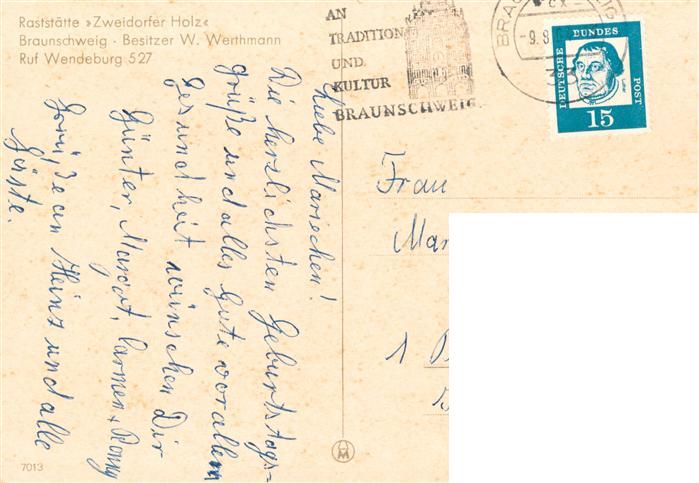 Raststätte »Zweidorfer Holz«
Braunschweig · Besitzer W. Werthmann
Ruf Wendeburg 527
AN
TRADITION
UND
KULTUR
BRAUNSCHWEIG
-9.8.
DEUTSCHE BUNDESPOST
15
Liebe Mariechen!
Die herzlichsten Geburtstags-
grüße und alles Gute vor allem
Gesundheit wünschen Dir
Günter, Margot, Carmen + Ronny
Grüße an Heinz und alle
Gäste.
Frau
Mar
1
7013